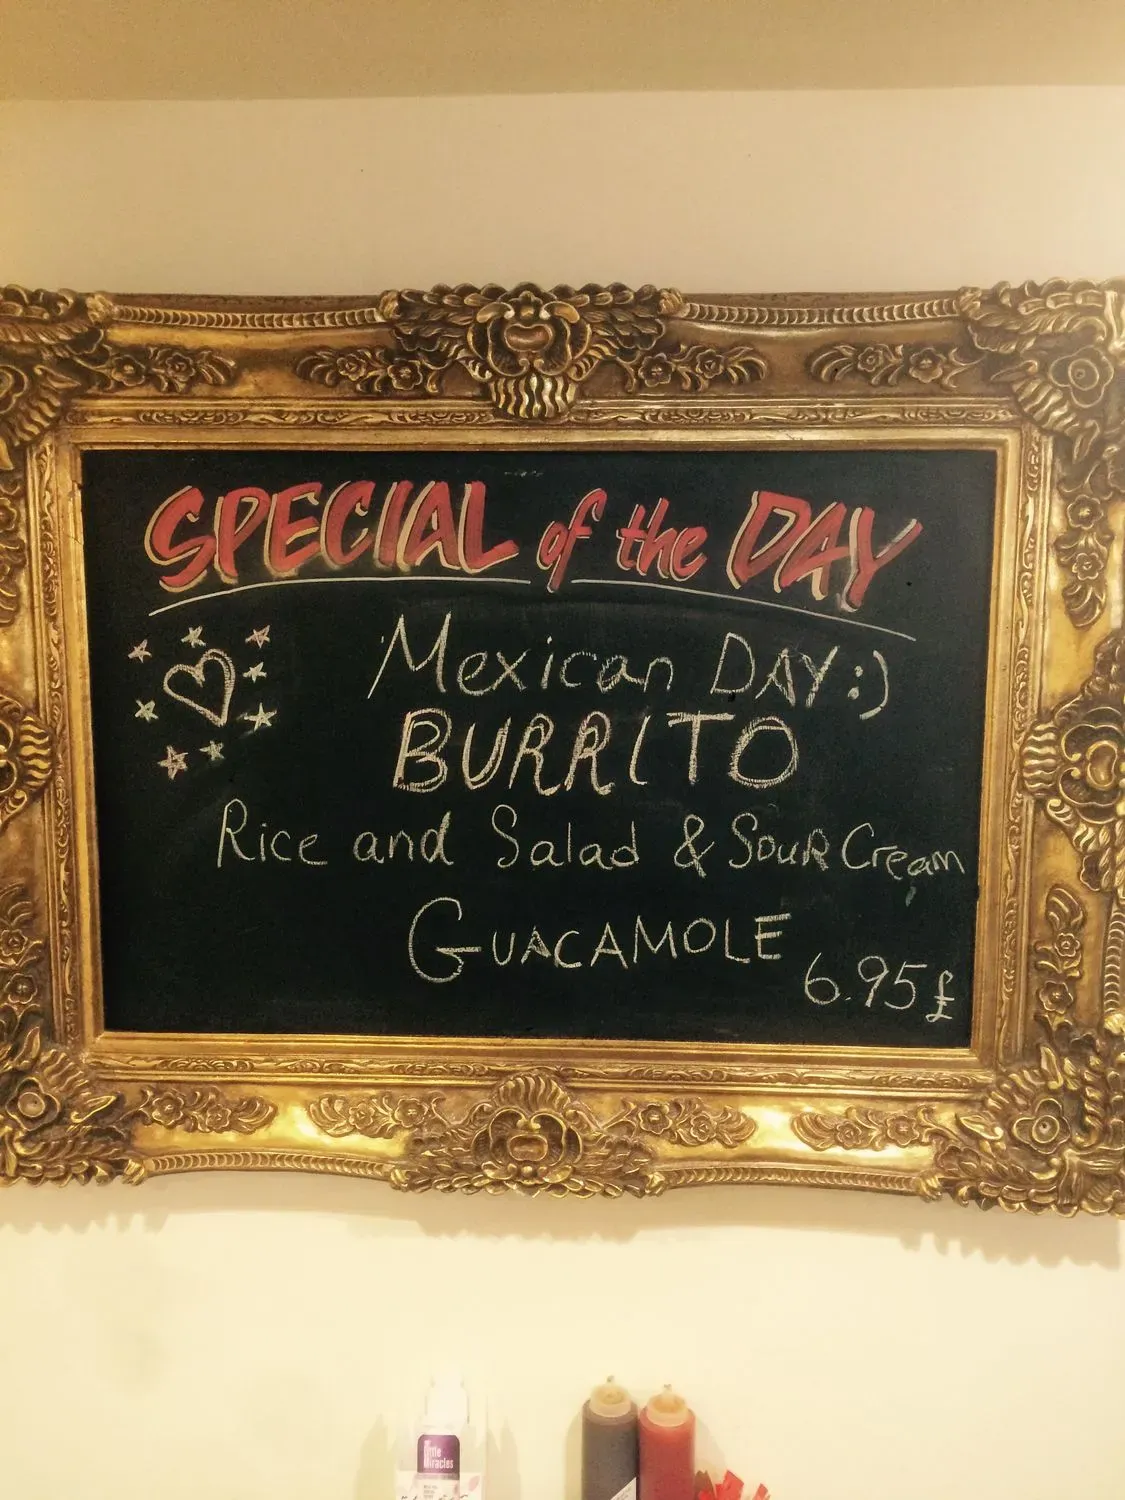 SPECIAL of the DAY
Mexican DAY :)
BURRITO
Rice and Salad & Sour Cream
GUACAMOLE
6.95£
Little
Miracles